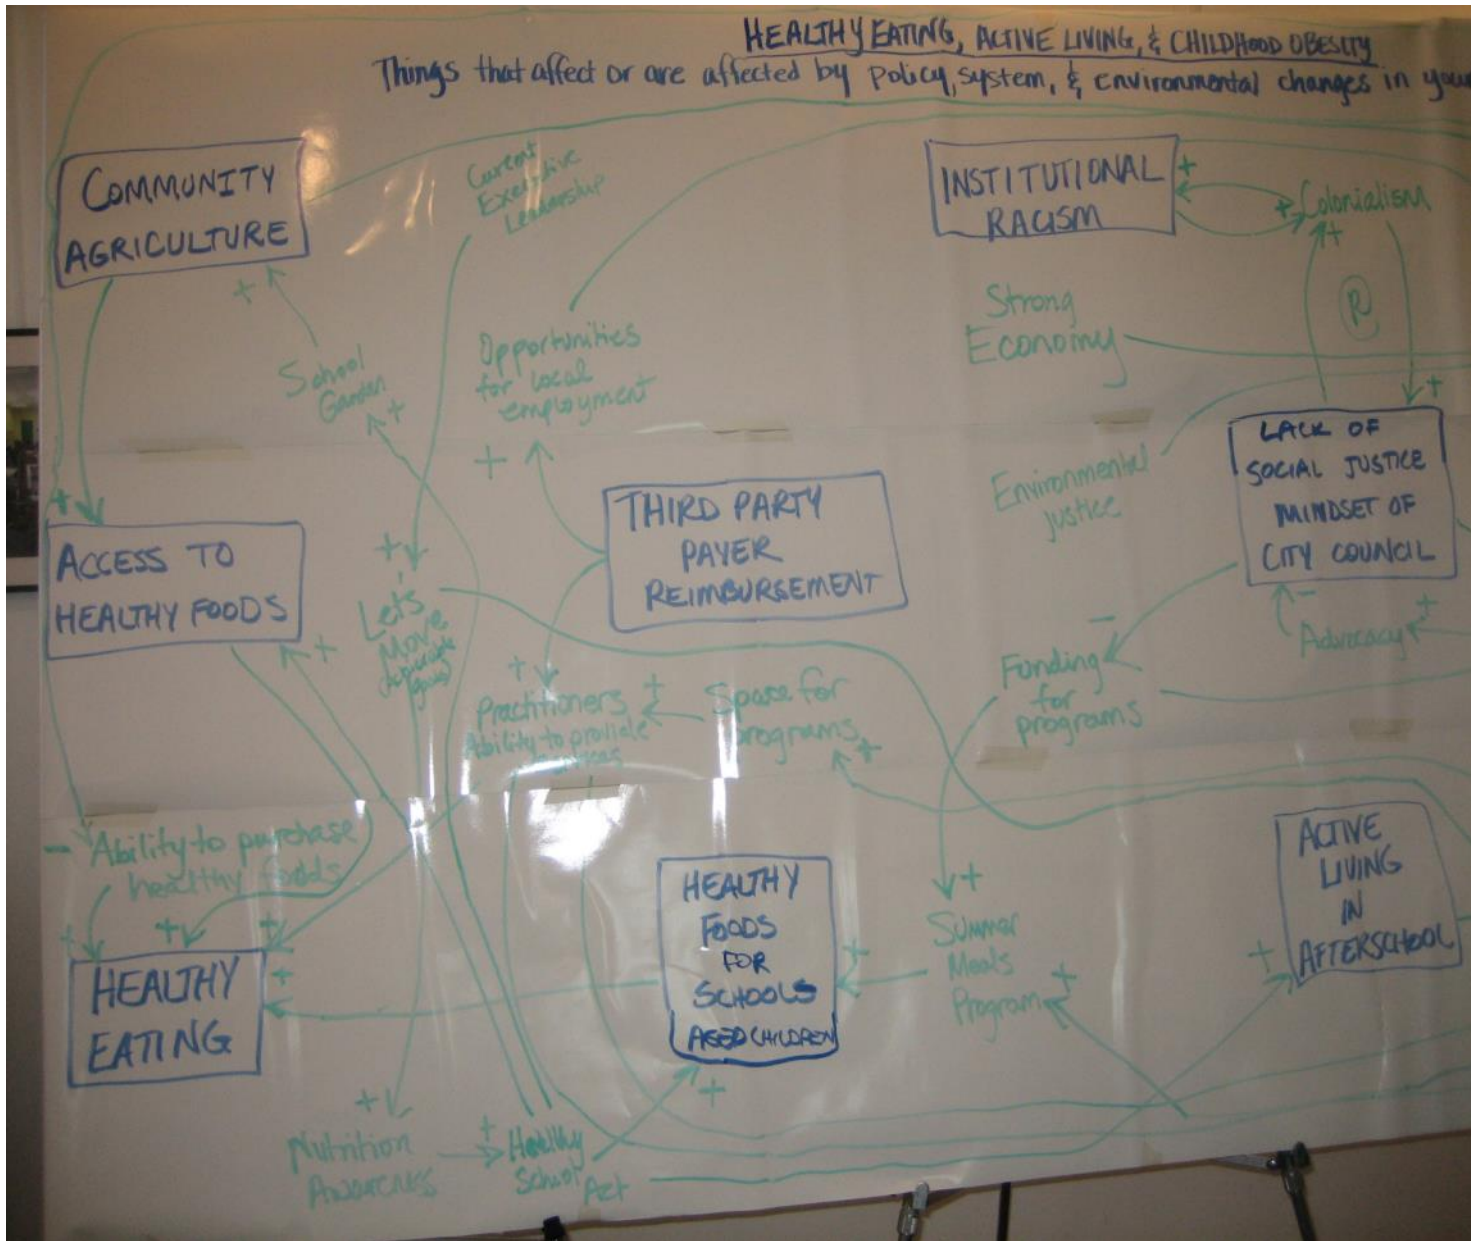 HEALTHY EATING, ACTIVE LIVING, & CHILDHOOD OBESITY
Things that affect or are affected by policy, system, & environmental changes in your
COMMUNITY
AGRICULTURE
Current
Executive
Leadership
INSTITUTIONAL
RACISM
+
+
Colonialism
+
+
School
Garden
+
Opportunities
for local
employment
+
Strong
Economy
R
+
LACK OF
SOCIAL JUSTICE
MINDSET OF
CITY COUNCIL
Environmental
justice
THIRD PARTY
PAYER
REIMBURSEMENT
+
ACCESS TO
HEALTHY FOODS
+
+
Let's
Move
-
Advocacy
+
-
Funding
for
programs
+
Practitioners
Ability to provide
+
Space for
programs
+
- Ability to purchase
healthy foods
+
+
+
+
HEALTHY
EATING
HEALTHY
FOODS
FOR
SCHOOLS
AGED CHILDREN
+
+
+
Summer
Meals
Program
+
ACTIVE
LIVING
IN
AFTERSCHOOL
+
+
Nutrition
Awareness
+
Healthy
School
Act